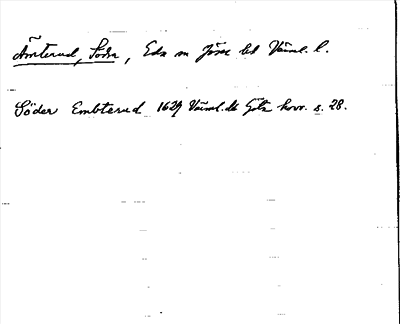 Åmterud, Södra, Eda sn Jösse hd Värml. l.
Söder Embterud 1639 Värml.ds Göta hovr. s. 28.